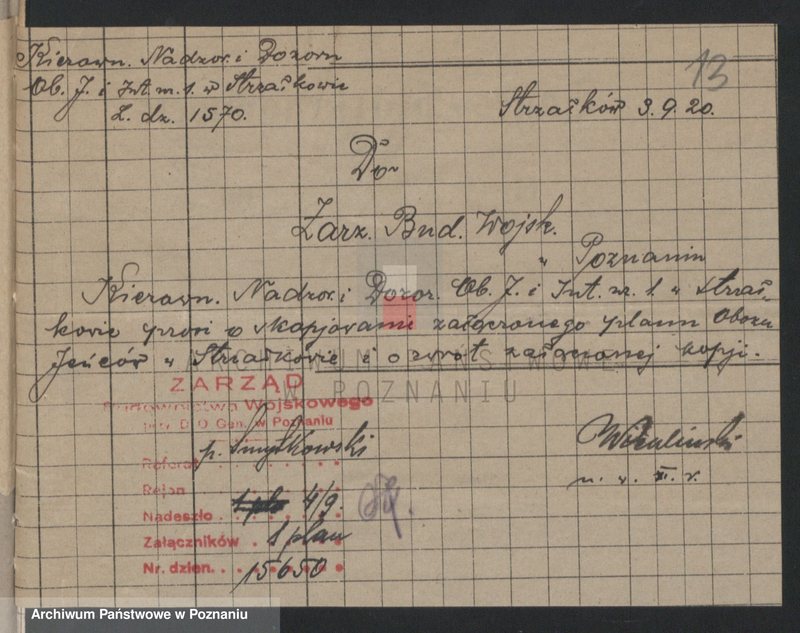 Kierown. Nadzor. i Dozoru
Ob. J. i Int. nr. 1. w Strzałkowie
L. dz. 1570.
13
Strzałków 3.9.20.
Do
Zarz. Bud. Wojsk.
w Poznaniu
Kierown. Nadzor. i Dozor. Ob. J. i Int. nr. 1. w Strzał-
kowie prosi o skopjowanie załączonego planu Obozu
Jeńców w Strzałkowie i o zwrot załączonej kopji.
ARCHIWUM PAŃSTWOWE
W POZNANIU
ZARZĄD
Budownictwa Wojskowego
przy D. O. Gen. w Poznaniu
Referat p. Smytkowski
Rejon
Nadeszło 4/9.
Załączników 1 plan
Nr. dzien. 15650
Archiwum Państwowe w Poznaniu